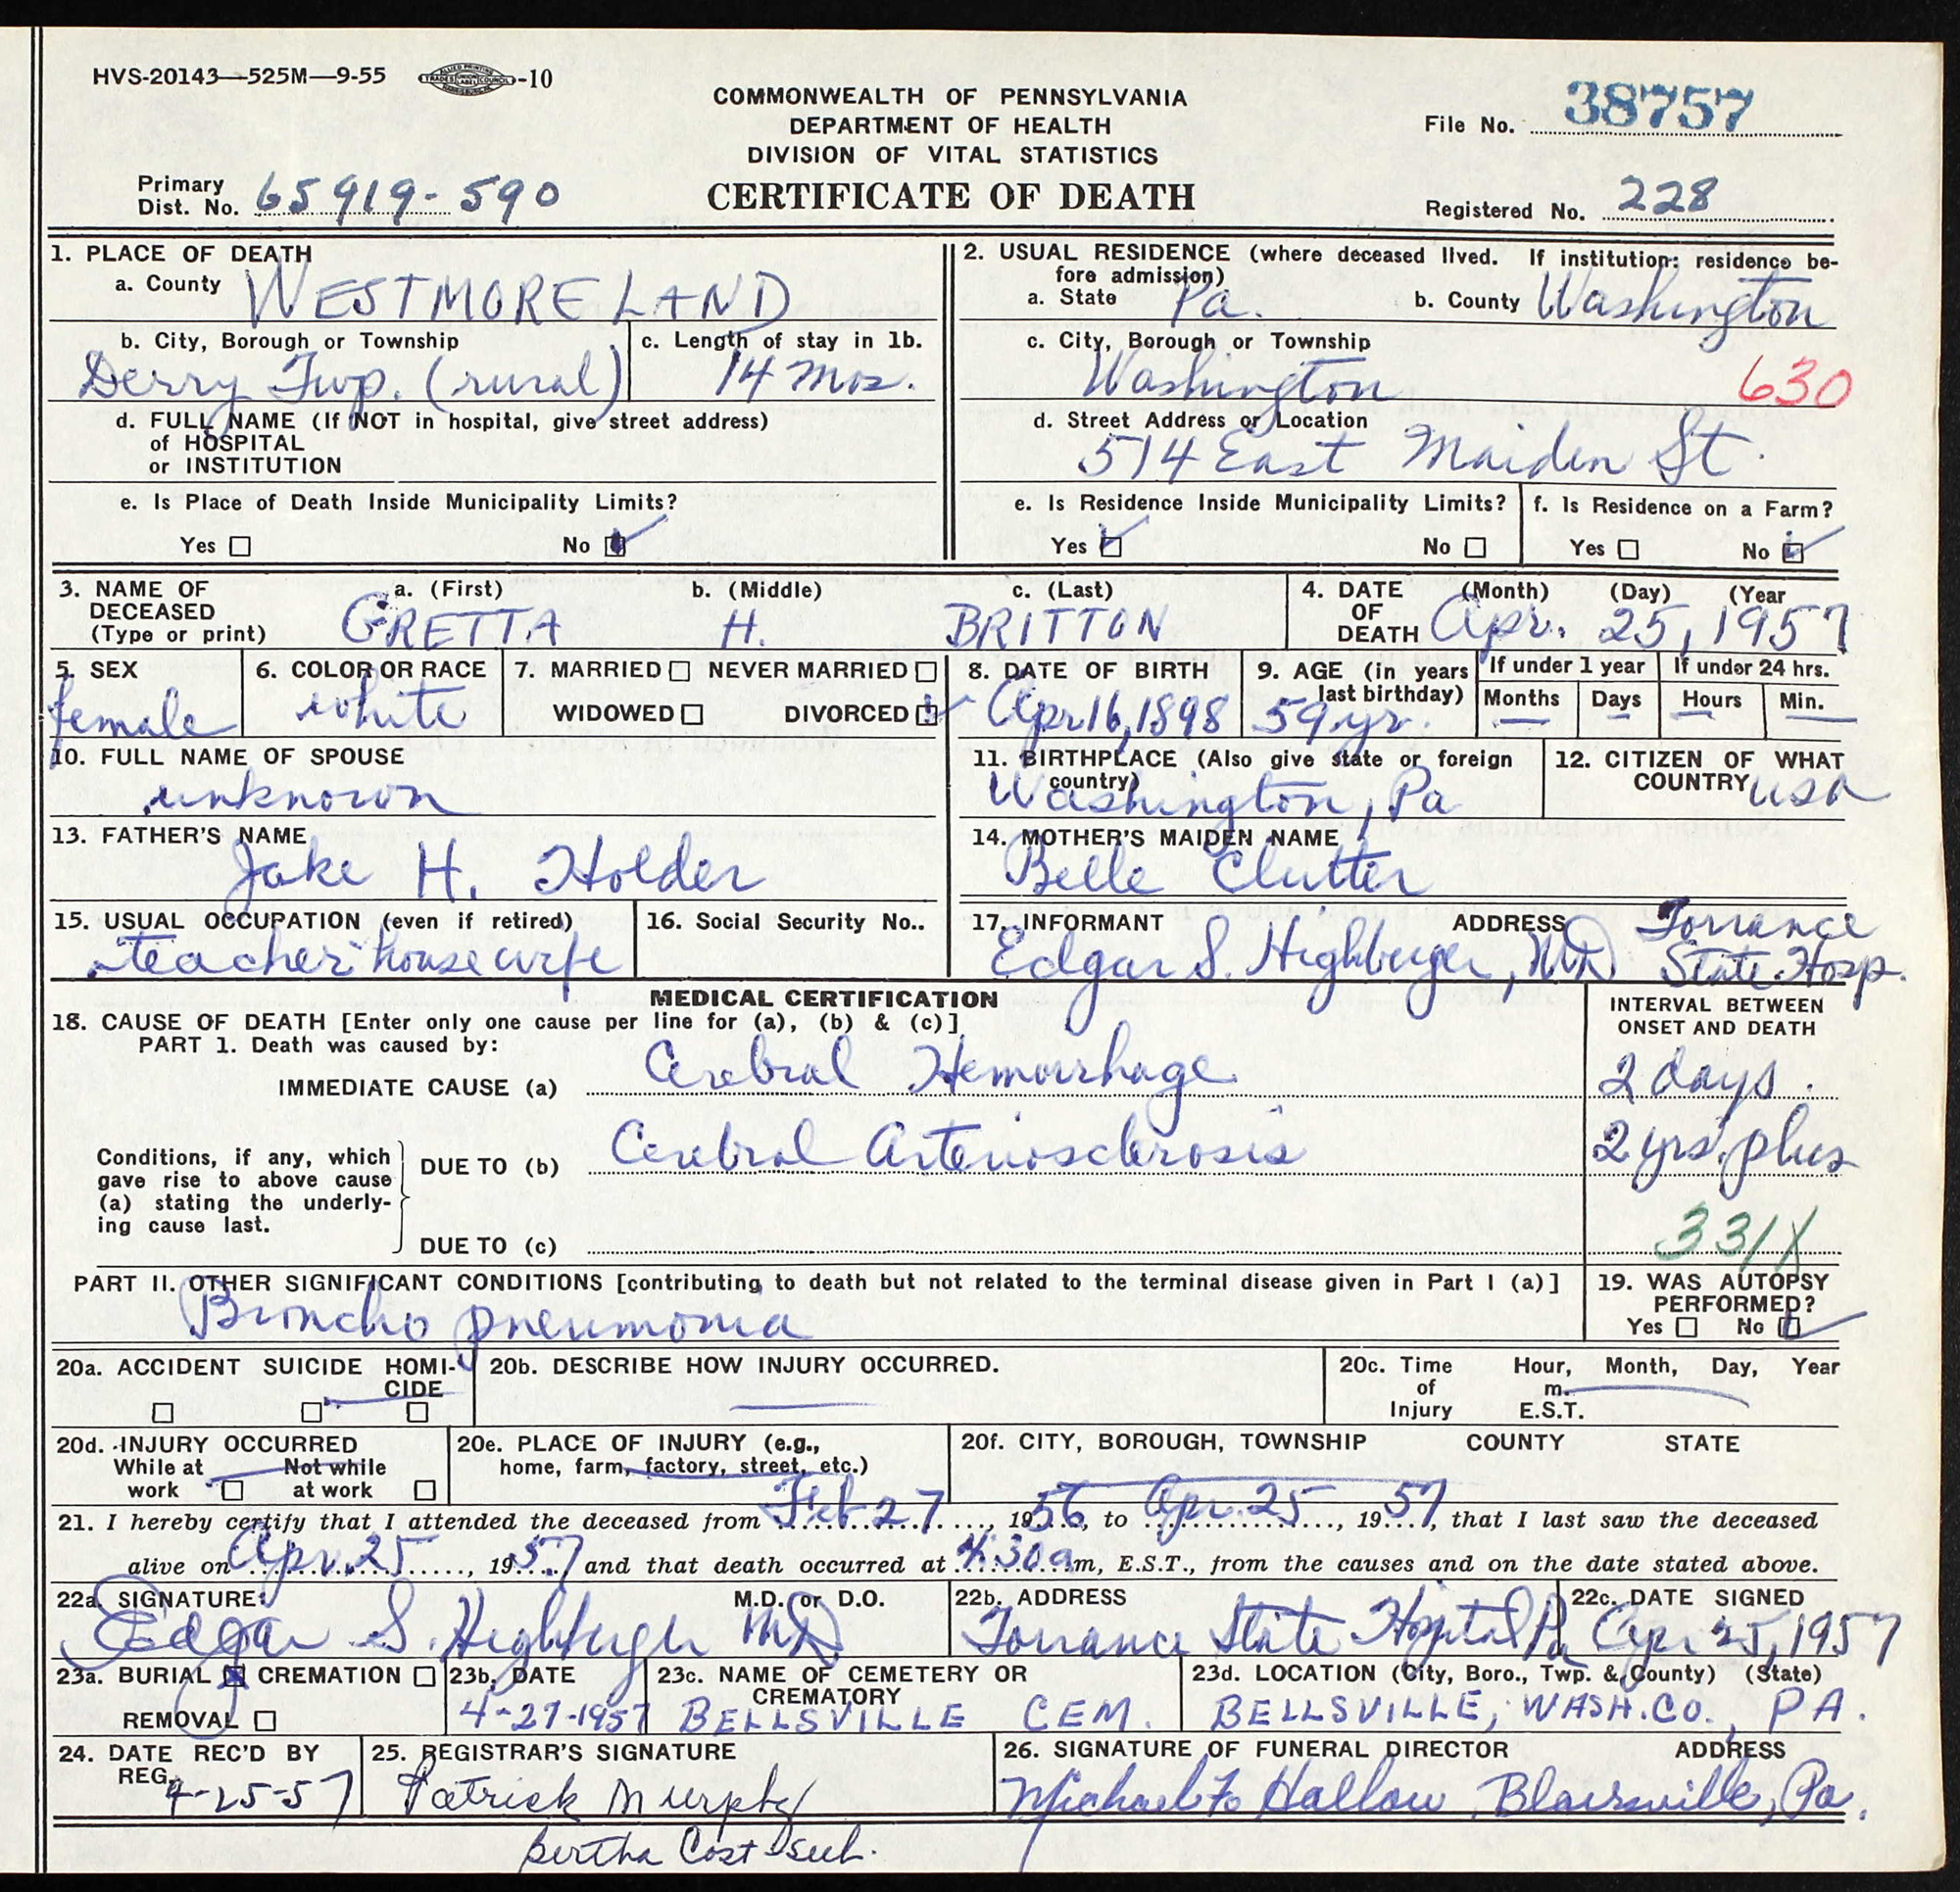 HVS-20143—525M—9-55 -10
COMMONWEALTH OF PENNSYLVANIA
DEPARTMENT OF HEALTH
DIVISION OF VITAL STATISTICS
CERTIFICATE OF DEATH
File No. 38757
Primary Dist. No. 65919-590
Registered No. 228
1. PLACE OF DEATH
a. County WESTMORELAND
b. City, Borough or Township
Derry Twp. (rural)
c. Length of stay in 1b.
14 mos.
d. FULL NAME (If NOT in hospital, give street address)
of HOSPITAL
or INSTITUTION
e. Is Place of Death Inside Municipality Limits?
Yes No
2. USUAL RESIDENCE (where deceased lived. If institution: residence be-
fore admission)
a. State Pa. b. County Washington
c. City, Borough or Township
Washington 630
d. Street Address or Location
514 East Maiden St.
e. Is Residence Inside Municipality Limits?
Yes No
f. Is Residence on a Farm?
Yes No
3. NAME OF DECEASED (Type or print)
a. (First) b. (Middle) c. (Last)
GRETTA H. BRITTON
4. DATE OF DEATH (Month) (Day) (Year
Apr. 25, 1957
5. SEX
female
6. COLOR OR RACE
white
7. MARRIED NEVER MARRIED
WIDOWED DIVORCED
8. DATE OF BIRTH
Apr 16, 1898
9. AGE (in years last birthday)
59 yr.
If under 1 year If under 24 hrs.
Months Days Hours Min.
10. FULL NAME OF SPOUSE
unknown
11. BIRTHPLACE (Also give state or foreign country)
Washington, Pa
12. CITIZEN OF WHAT COUNTRY
USA
13. FATHER'S NAME
Jake H. Holder
14. MOTHER'S MAIDEN NAME
Belle Clutter
15. USUAL OCCUPATION (even if retired)
teacher housewife
16. Social Security No..
17. INFORMANT ADDRESS
Edgar S. Highberger, MD Torrance State Hosp.
MEDICAL CERTIFICATION
18. CAUSE OF DEATH [Enter only one cause per line for (a), (b) & (c)]
PART 1. Death was caused by:
IMMEDIATE CAUSE (a) Cerebral Hemorrhage
INTERVAL BETWEEN
ONSET AND DEATH
2 days.
Conditions, if any, which
gave rise to above cause
(a) stating the underly-
ing cause last.
DUE TO (b) Cerebral Arteriosclerosis
2 yrs. plus
DUE TO (c)
331X
PART II. OTHER SIGNIFICANT CONDITIONS [contributing to death but not related to the terminal disease given in Part I (a)]
Broncho pneumonia
19. WAS AUTOPSY PERFORMED?
Yes No
20a. ACCIDENT SUICIDE HOMI-
CIDE
20b. DESCRIBE HOW INJURY OCCURRED.
20c. Time of Injury Hour, Month, Day, Year
m.
E.S.T.
20d. INJURY OCCURRED
While at work Not while at work
20e. PLACE OF INJURY (e.g.,
home, farm, factory, street, etc.)
20f. CITY, BOROUGH, TOWNSHIP COUNTY STATE
21. I hereby certify that I attended the deceased from Feb 27, 1956, to Apr. 25, 1957, that I last saw the deceased
alive on Apr. 25, 1957 and that death occurred at 4:30 a m, E.S.T., from the causes and on the date stated above.
22a. SIGNATURE: M.D. or D.O.
Edgar S. Highberger MD
22b. ADDRESS
Torrance State Hospital Pa
22c. DATE SIGNED
Apr 25, 1957
23a. BURIAL CREMATION
REMOVAL
23b. DATE
4-27-1957
23c. NAME OF CEMETERY OR CREMATORY
BELLSVILLE CEM.
23d. LOCATION (City, Boro., Twp. & County) (State)
BELLSVILLE, WASH. CO., PA.
24. DATE REC'D BY REG.
4-25-57
25. REGISTRAR'S SIGNATURE
Patrick Murphy
26. SIGNATURE OF FUNERAL DIRECTOR ADDRESS
Michael F. Hallow Blairsville, Pa.
Bertha Cost